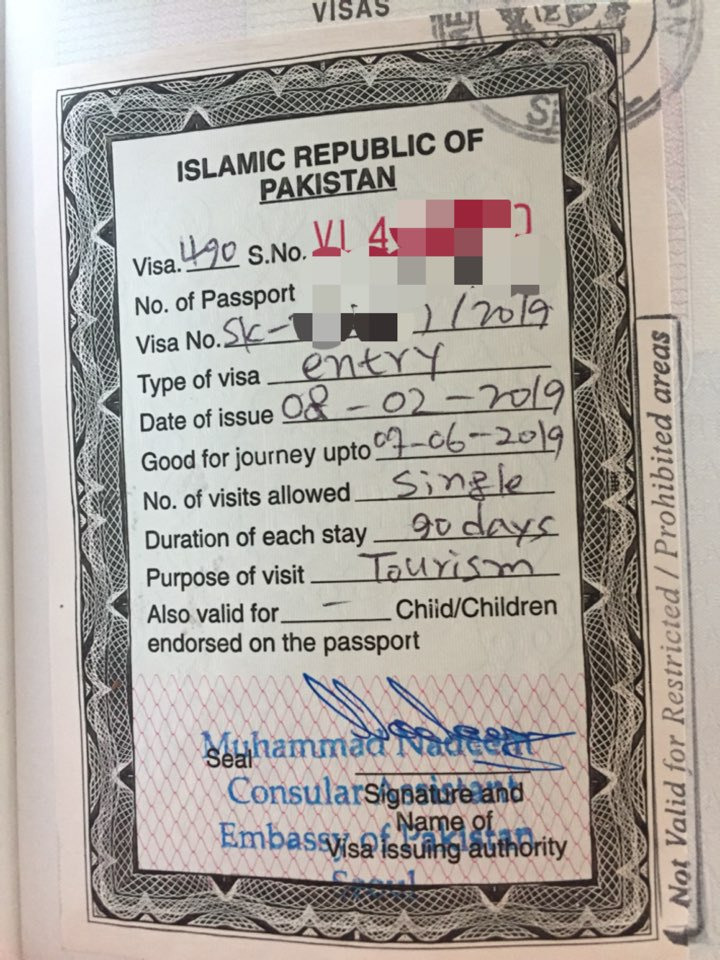 VISAS
ISLAMIC REPUBLIC OF
PAKISTAN
Visa. 490 S.No. VI 4
No. of Passport
Visa No. SK- 1/2019
Type of visa entry
Date of issue 08-02-2019
Good for journey upto 07-06-2019
No. of visits allowed Single
Duration of each stay 90 days
Purpose of visit Tourism
Also valid for - Child/Children
endorsed on the passport
Muhammad Nadeem
Seal
Consular Assistant
Signature and
Name of
Embassy of Pakistan
Visa issuing authority
Seoul
Not Valid for Restricted / Prohibited areas